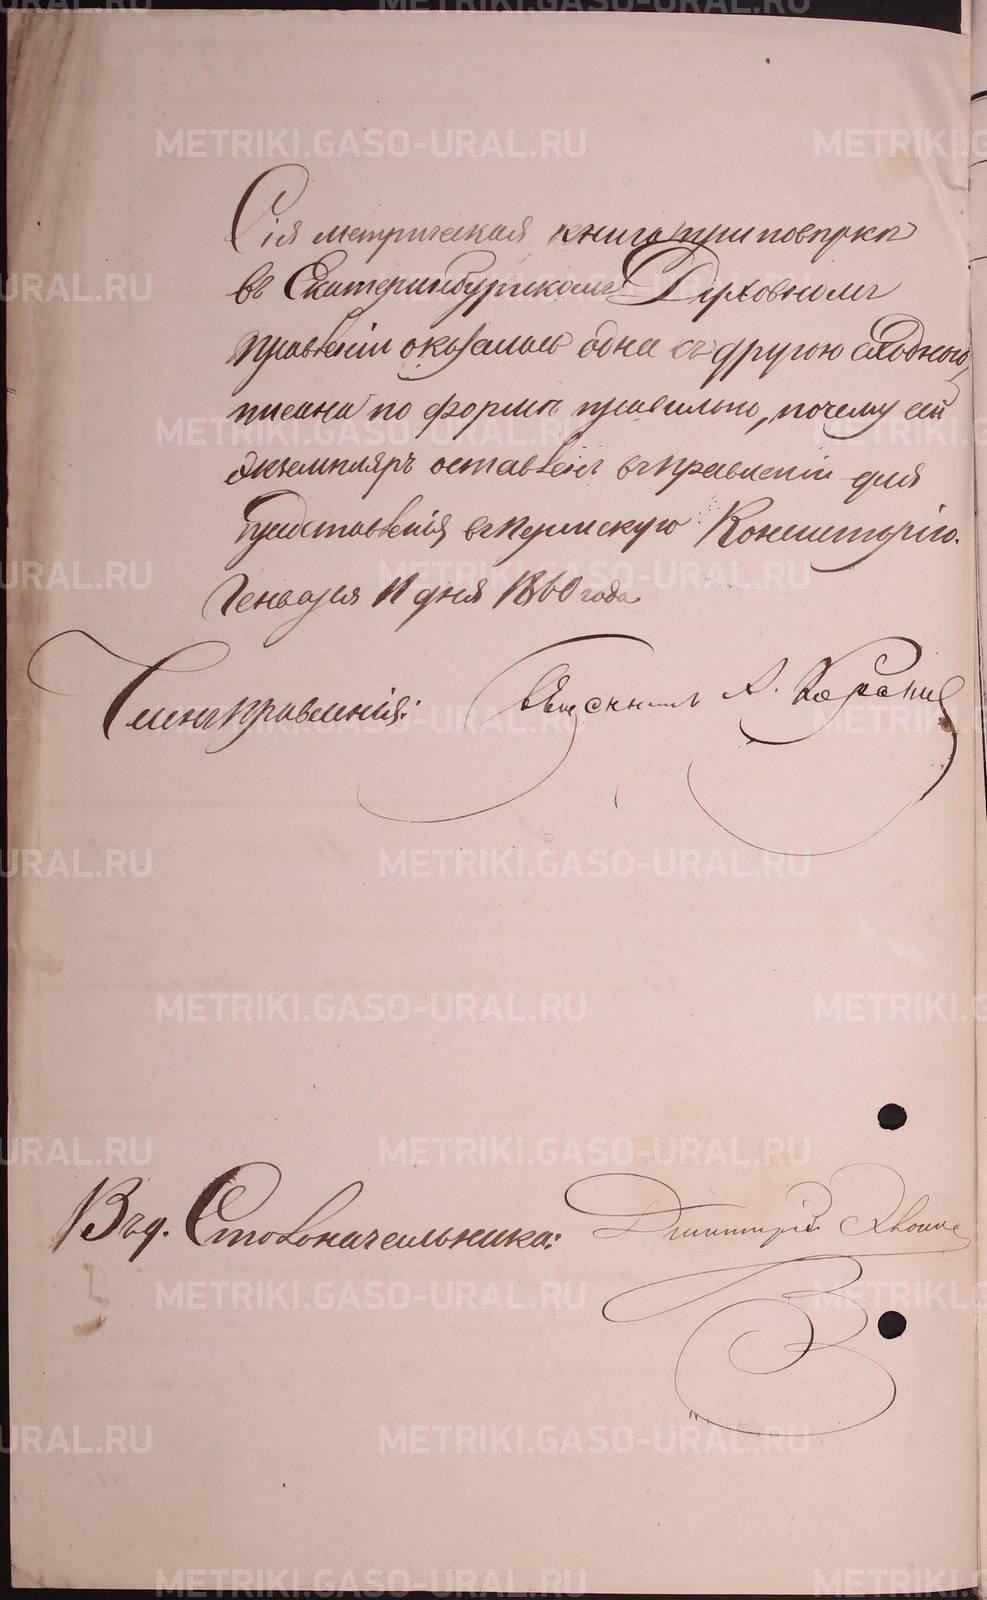 Сія метрическая книга при повѣркѣ
въ Екатеринбургскомъ Духовномъ
Правленіи оказалась одна съ другою сходною,
писана по формѣ правильно, почему сей
экземпляръ оставленъ въ Правленіи для
представленія въ Пермскую Консисторію.
Генваря 11 дня 1860 года
Членъ Правленія: Священникъ А.
Въ д. Столоначальника: Димитрій
METRIKI.GASO-URAL.RU